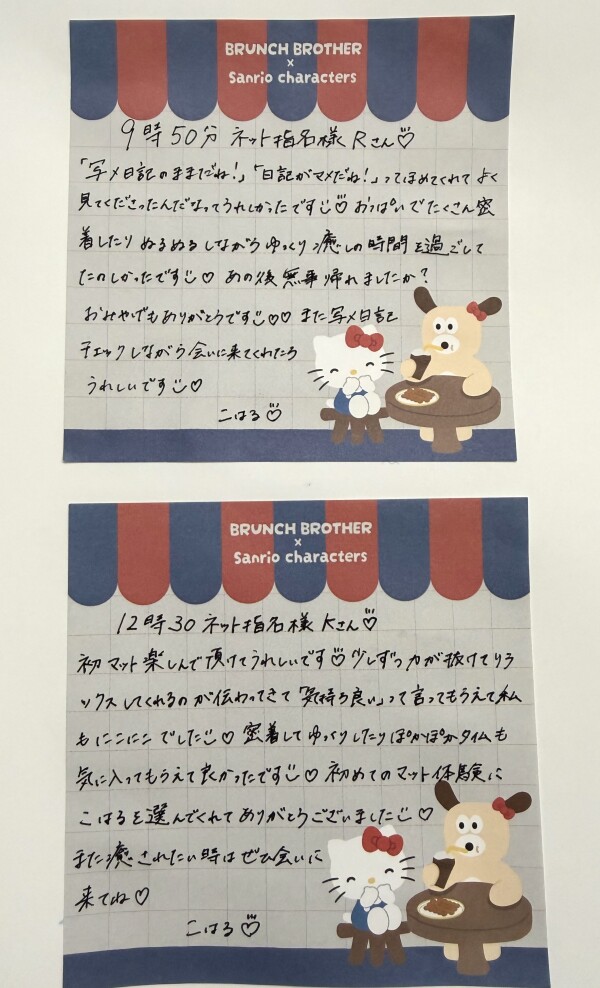 BRUNCH BROTHER
×
Sanrio characters
9時50分 ネット指名様 Rさん♡
「写メ日記のままだね!」「日記がマメだね!」ってほめてくれて よく
見てくださったんだなってうれしかったです♡ おっぱいでたくさん密
着したり ぬるぬる しながら ゆっくり 癒しの時間を過ごして
たのしかったです♡ あの後 無事 帰れましたか?
おみやげもありがとうです♡♡ また写メ日記
チェックしながら会いに来てくれたら
うれしいです♡
こはる♡
BRUNCH BROTHER
×
Sanrio characters
12時30 ネット指名様 Kさん♡
初マット楽しんで頂けてうれしいです♡ 少しずつ力が抜けてリラ
ックスしてくれるのが伝わってきて「気持ち良い」って言ってもらえて私
もにこにこでした♡ 密着して ゆっくりしたり ぽかぽかタイムも
気に入ってもらえて良かったです♡ 初めてのマット体験に
こはるを選んでくれて ありがとうございました♡
また癒されたい時は ぜひ会いに
来てね♡
こはる♡